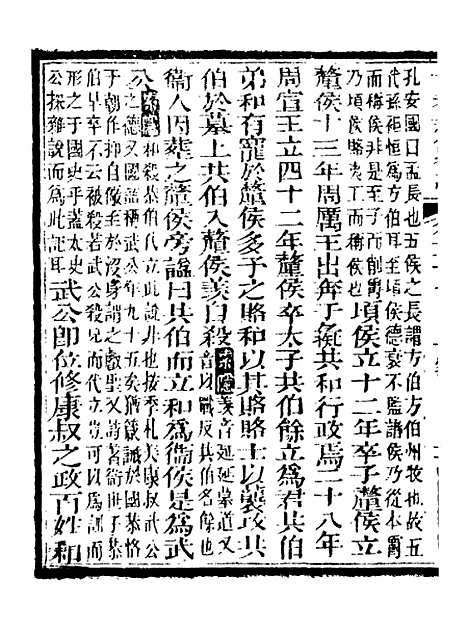 孔安國曰孟長也五侯之長謂方伯方伯州牧也故五
代孫祖恒爲方伯耳至頃侯德衰不監諸侯乃從本爵
而稱侯非是至子而削爵
乃頃侯賂夷王而稱侯也
頃侯立十二年卒子釐侯立
釐侯十三年周厲王出奔于彘共和行政焉二十八年
周宣王立四十二年釐侯卒太子共伯餘立爲君共伯
弟和有寵於釐侯多予之賂和以其賂賂士以襲攻共
伯於墓上共伯入釐侯羡自殺
索隱羡音延延墓道又
音以戰反共伯名餘也
衞人因葬之釐侯旁謚曰共伯而立和爲衞侯是爲武
公
索隱和殺恭伯代立此說非也按季札美康叔武公
之德又國語稱武公年九十五矣猶箴誡於國恭恪
于朝作抑自儆至於没身謂之叡聖又詩著衞世子恭
伯早卒不云被殺若武公殺兄而代立豈可以爲訓而
形之于國史乎蓋太史
公採雜說而爲此記耳
武公卽位修康叔之政百姓和